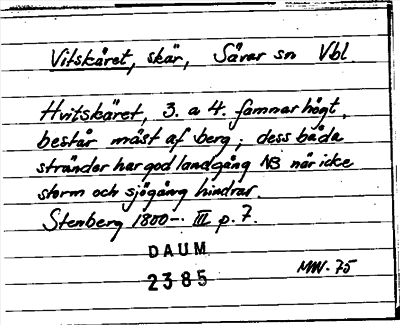 Vitskäret, skär, Sävar sn Vbl.
Hvitskäret, 3. a 4. famnar högt,
består mäst af berg; dess båda
stränder har god landgång NB när icke
storm och sjögång hindrar.
Stenberg 1800-. III p. 7.
DAUM
2385
MW-75